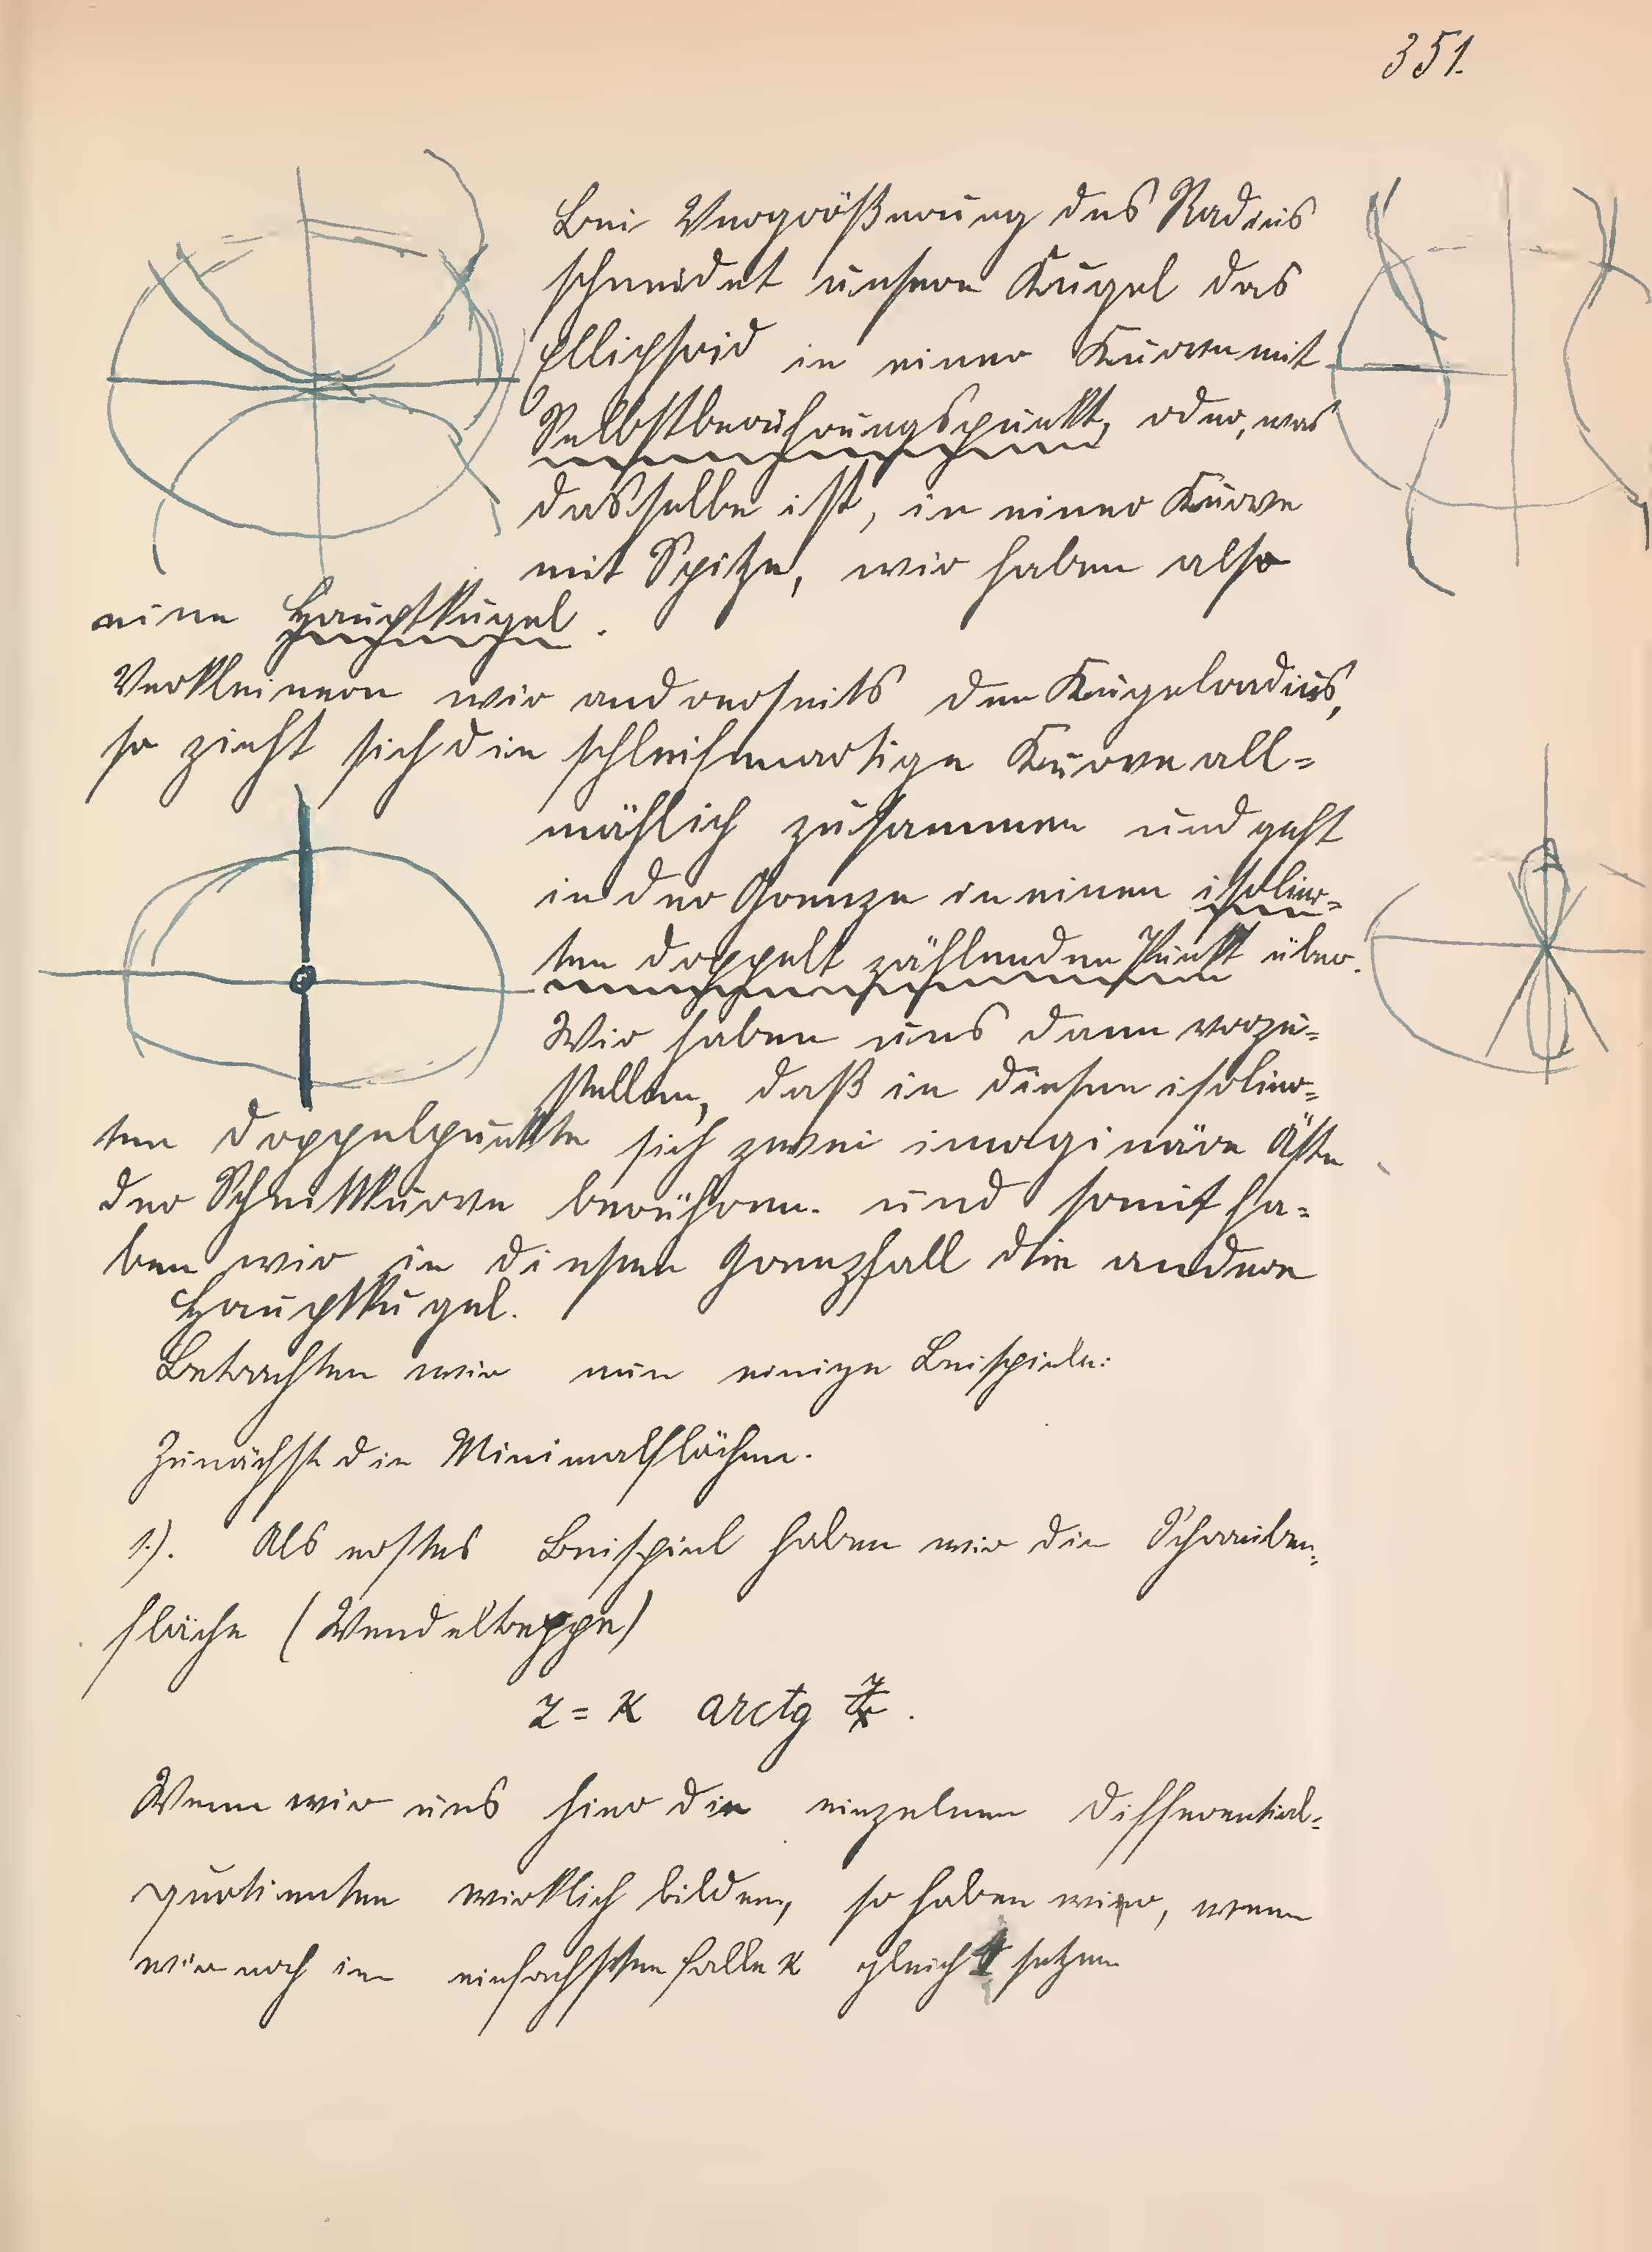 351.
Bei Vergrößerung des Radius
schneidet unsere Kugel das
Ellipsoid in einer Kurve mit
Selbstberührungspunkt, oder, was
dasselbe ist, in einer Kurve
mit Spitze, wir haben also
eine Hauptkugel.
Verkleinern wir andererseits den Kugelradius,
so zieht sich die schleifenartige Kurve all=
mählich zusammen und geht
in der Grenze in einen isolier=
ten doppelt zählenden Punkt über.
Wir haben uns dann vorzu=
stellen, daß in diesem isolier=
ten Doppelpunkte sich zwei imaginäre Äste
der Schnittkurve berühren. und somit ha=
ben wir in diesem Grenzfall die andere
Hauptkugel.
Betrachten wir nun einige Beispiele:
Zunächst die Minimalflächen.
1.). Als erstes Beispiel haben wir die Schrauben=
fläche (Wendeltreppe)
z = κ arctg y/x .
Wenn wir uns hier die einzelnen Differential=
quotienten wirklich bilden, so haben wir, wenn
wir noch im einfachsten Falle κ gleich 1 setzen